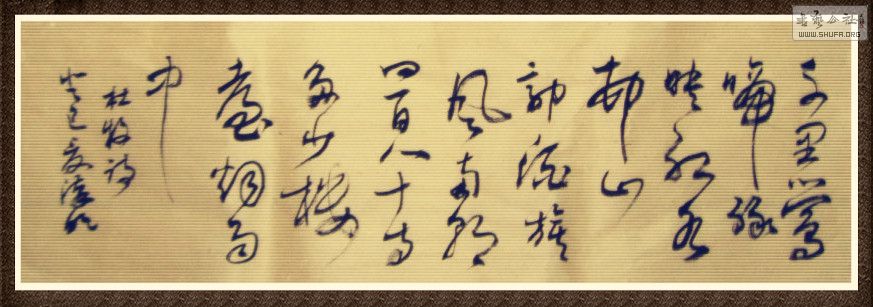 千里鶯
啼绿
映红水
邨山
郭酒旗
風南朝
四百八十寺
多少楼
臺烟雨
中
杜牧诗
癸巳夏
書藝公社
WWW.SHUFA.ORG